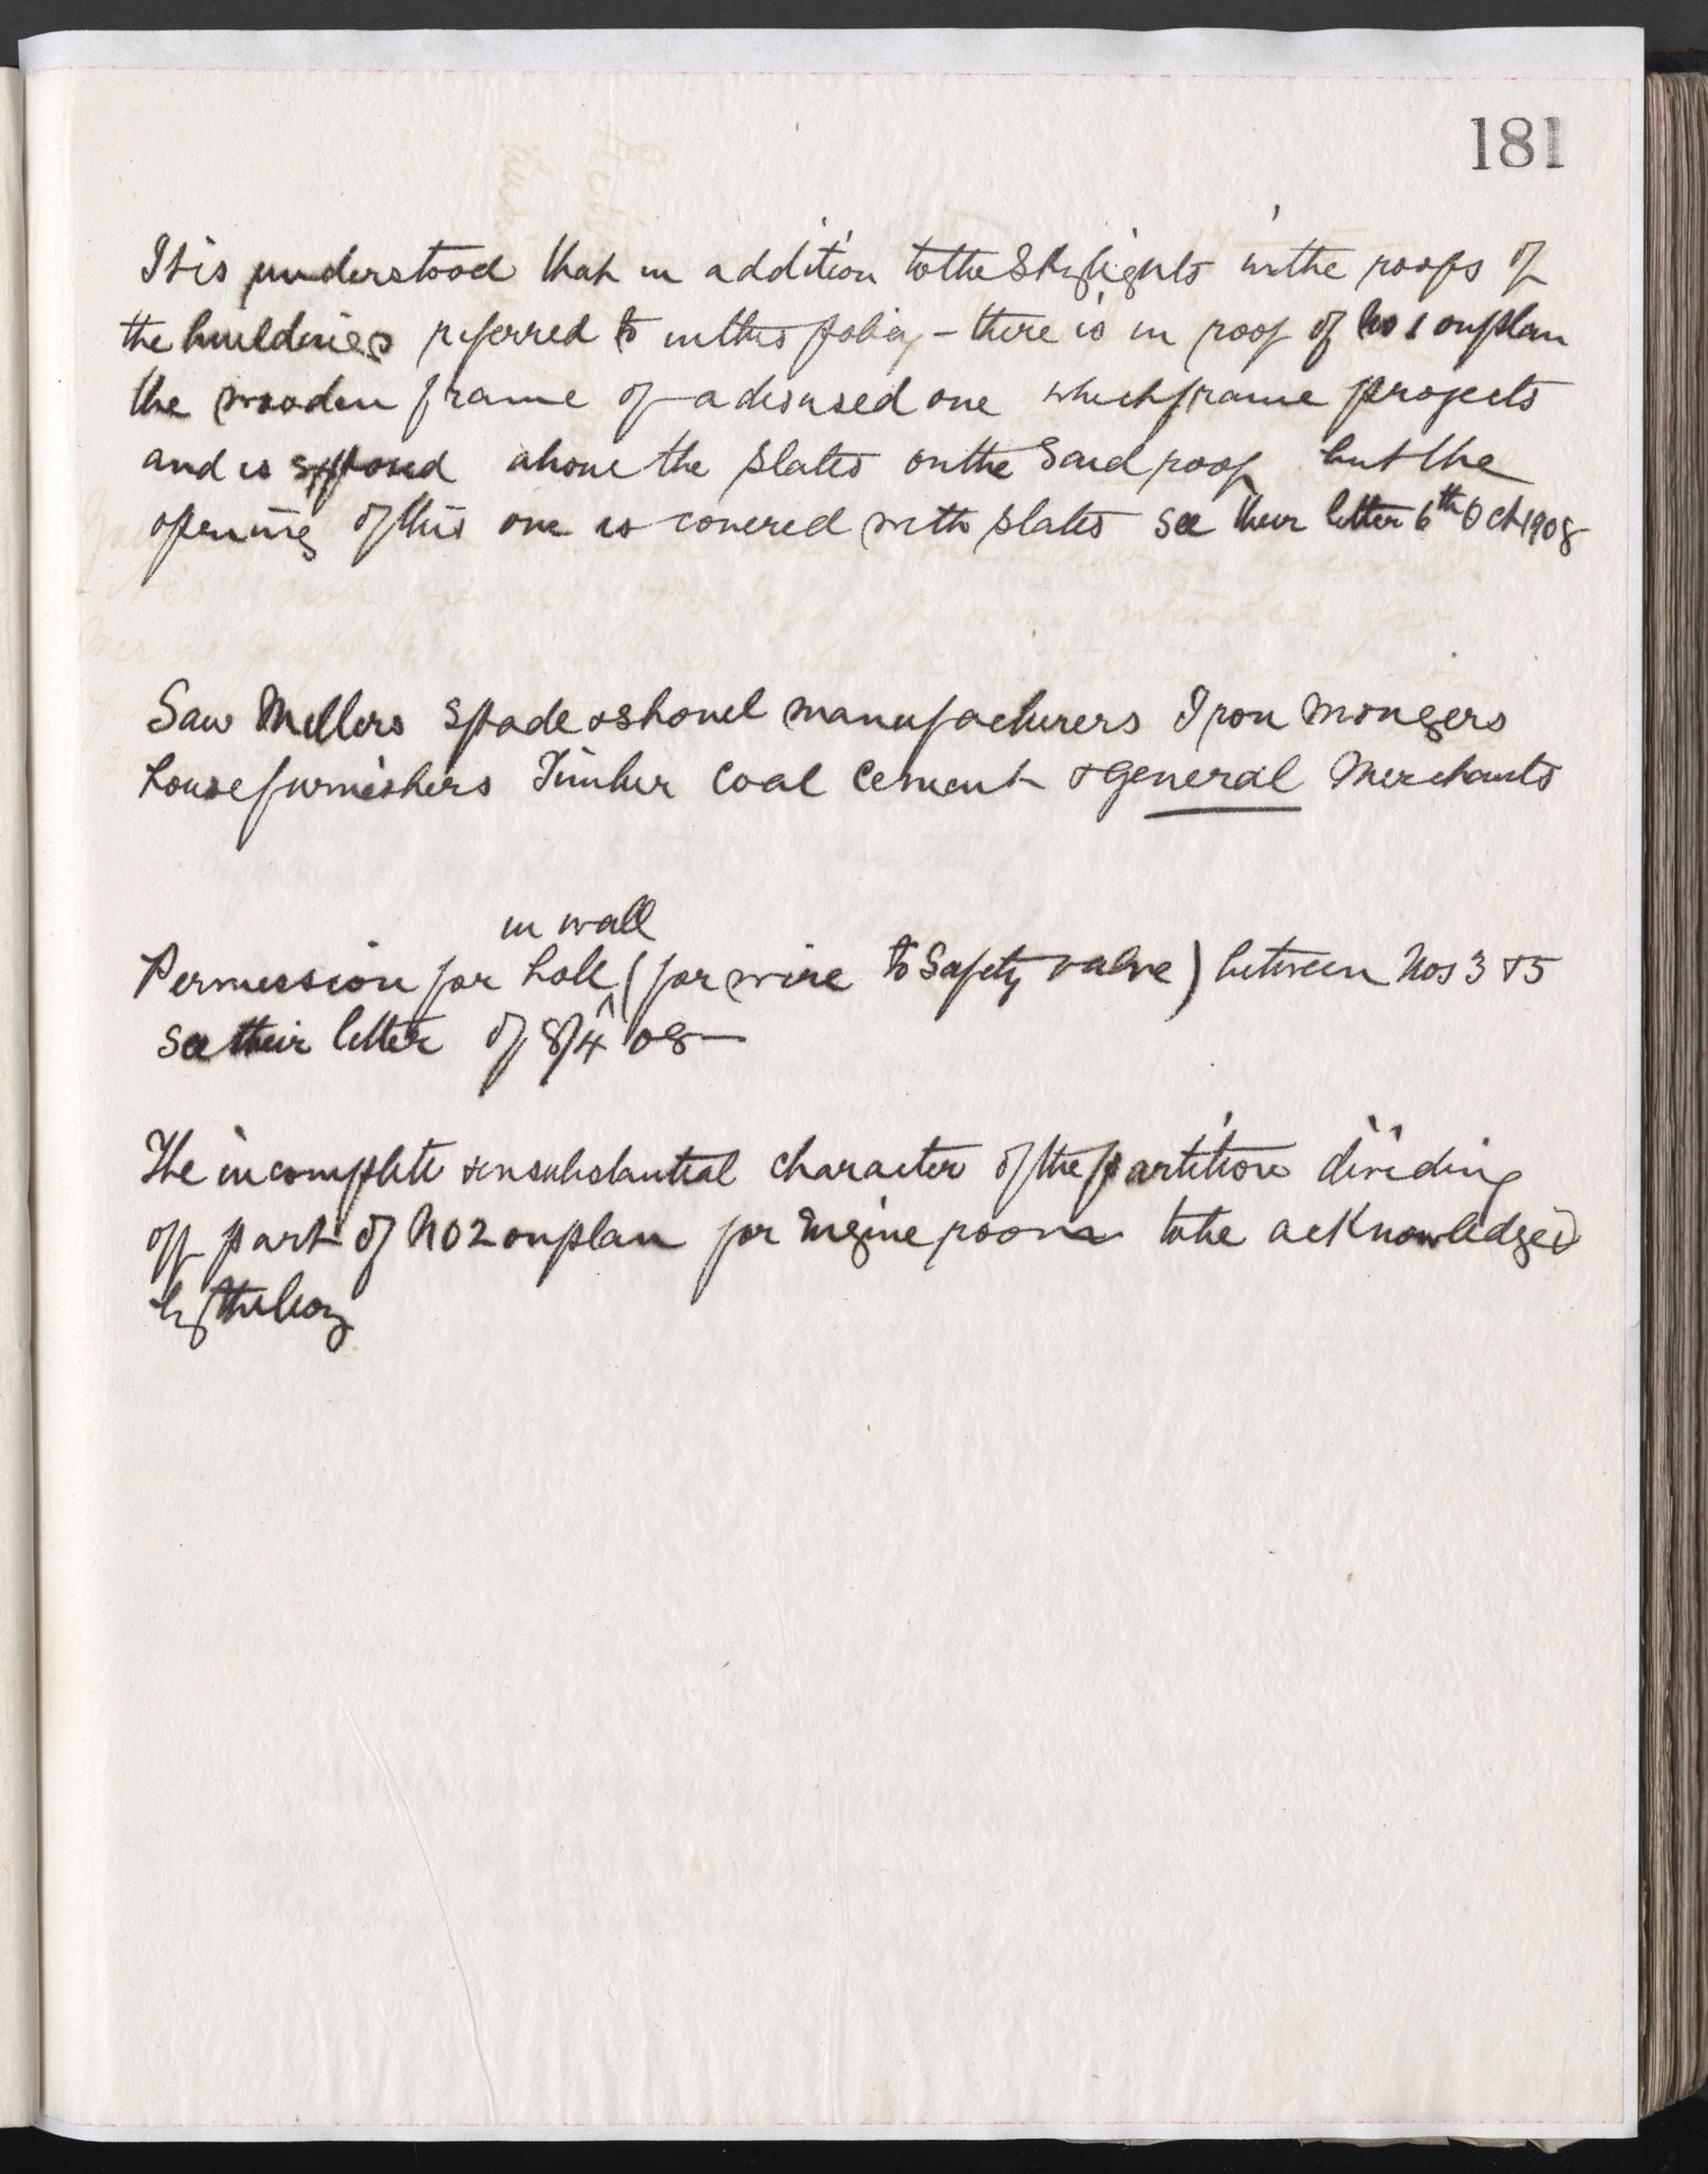 181
It is understood that in addition to the Skylights in the roofs of
the buildings referred to in this policy - there is in roof of No 1 on plan
the wooden frame of a disused one which frame projects
and is exposed above the slates on the said roof but the
opening of this one is covered with slates see their letter 6th Oct 1908
Saw Millers Spade & Shovel manufacturers Iron mongers
housefurnishers Timber Coal Cement & General Merchants
in wall
Permission for hole ^ (for wire to Safety valve) between Nos 3 & 5
See their letter of 8/4/08
The incomplete & insubstantial character of the partition dividing
off part of No 2 on plan for Engine room to be acknowledged
by the Coy